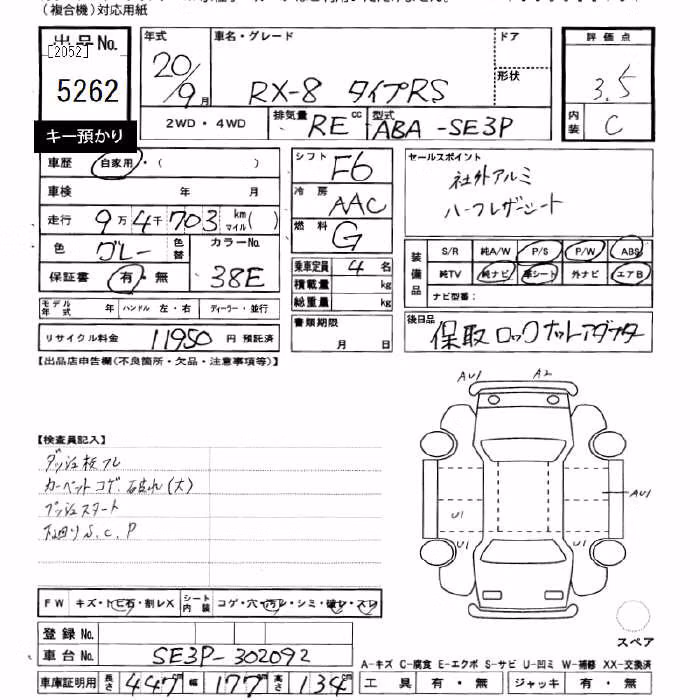 (複合機)対応用紙
出品No.
[2052]
5262
キー預かり
年式
20/9月
車名・グレード
RX-8 タイプRS
ドア
形状
2WD・4WD
排気量
RE cc
型式
ABA-SE3P
評価点
3.5
内装
C
車歴 自家用・( )
車検 年 月
走行 9万4千703 km マイル( )
色 グレー 色替
カラーNo. 38E
保証書 有・無
シフト F6
冷房 AAC
燃料 G
乗車定員 4名
積載量 kg
総重量 kg
書類期限
月 日
セールスポイント
社外アルミ
ハーフレザーシート
装備品
S/R 純A/W P/S P/W ABS
純TV 純ナビ 革シート 外ナビ エアB
ナビ型番:
モデル年式 年 ハンドル 左・右 ディーラー・並行
リサイクル料金 11950 円 預託済
後日品
保取 ロックナットアダプタ
【出品店申告欄(不良箇所・欠品・注意事項等)】
AU1 A2
【検査員記入】
ダッシュ板フレ
カーペットコゲ
(大)
プッシュスタート
下回りS.C.P
AU1
U1
U1 U1
FW キズ・トビ石・割レX
シート内装 コゲ・穴・汚レ・シミ・破レ・スレ
登録No.
車台No. SE3P-302092
車庫証明用 長さ 447cm 幅 177cm 高さ 134cm
スペア
A-キズ C-腐食 E-エクボ S-サビ U-凹ミ W-補修 XX-交換済
工具 有・無 ジャッキ 有・無